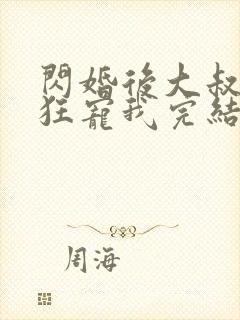 閃婚後大叔
狂寵我完結
周海